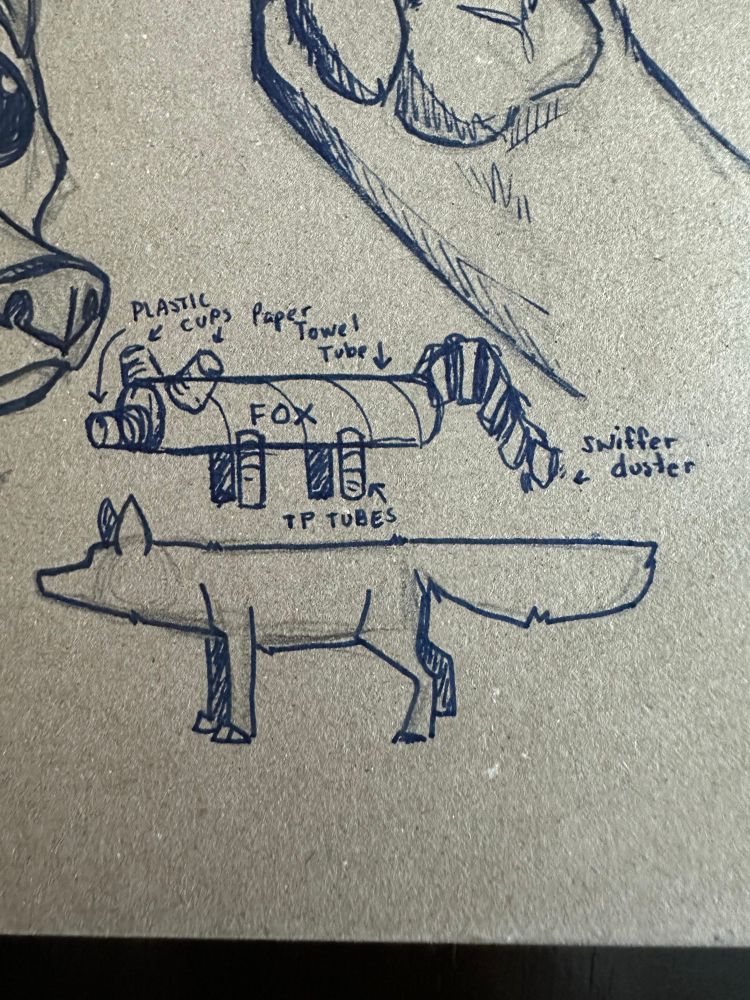 PLASTIC
CUPS
Paper
Towel
Tube
FOX
swiffer
duster
TP TUBES